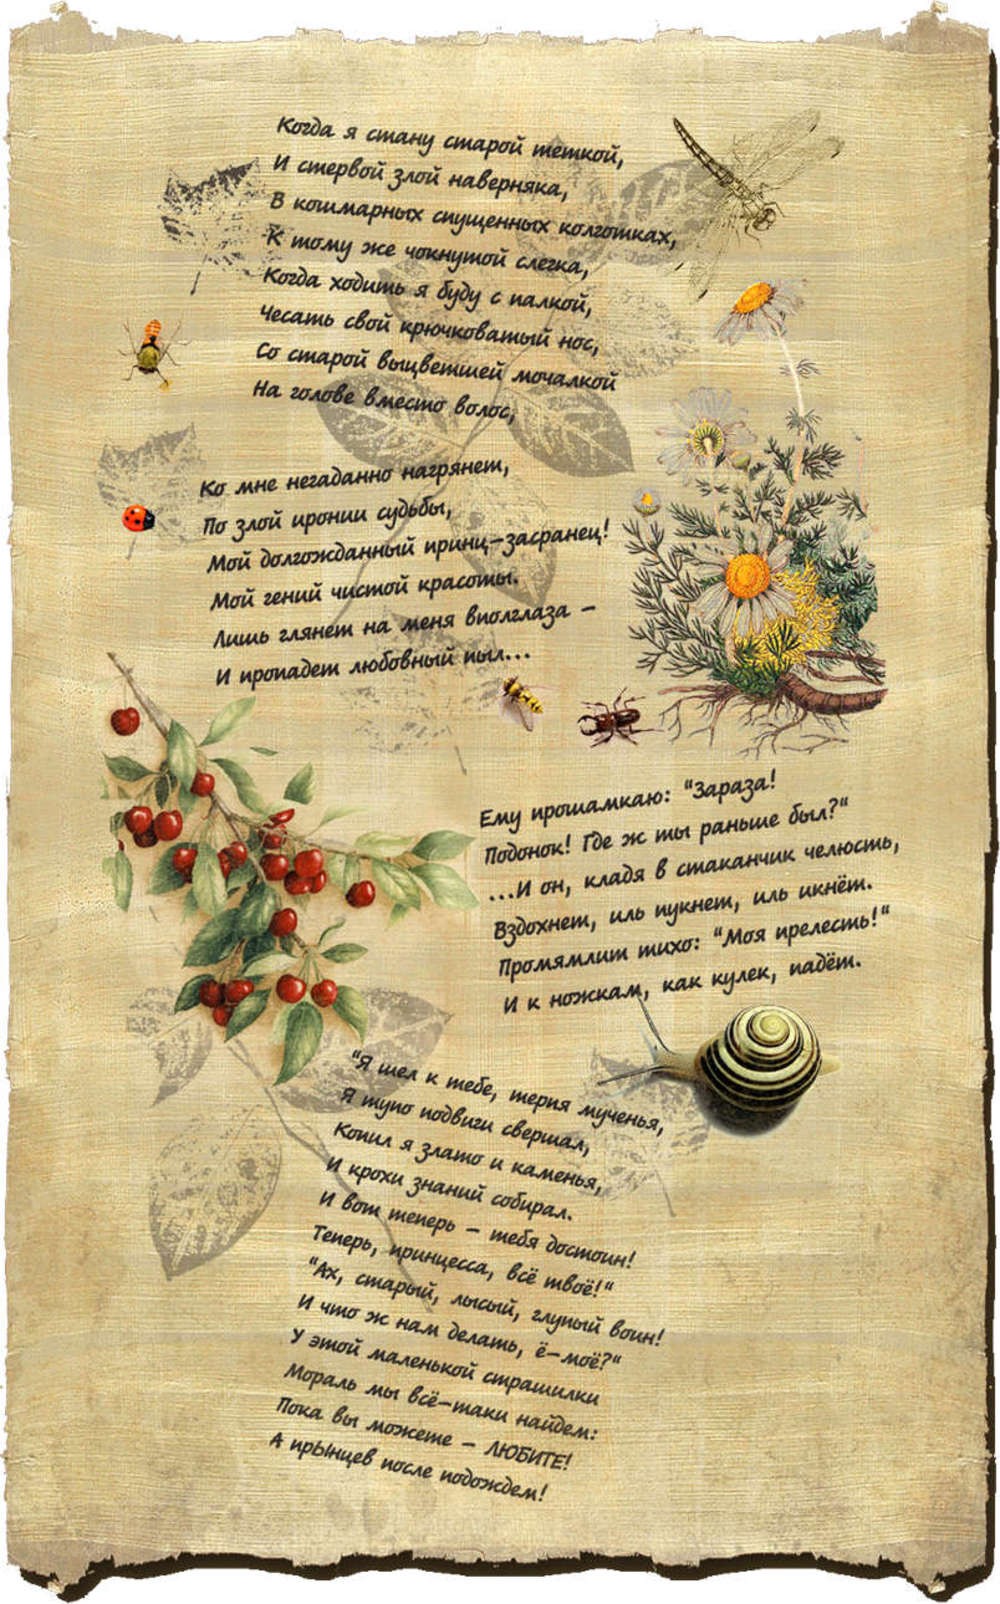 Когда я стану старой теткой,
И стервой злой наверняка,
В кошмарных спущенных колготках,
К тому же чокнутой слегка,
Когда ходить я буду с палкой,
Чесать свой крючковатый нос,
Со старой выцветшей мочалкой
На голове вместо волос,
Ко мне негаданно нагрянет,
По злой иронии судьбы,
Мой долгожданный принц-засранец!
Мой гений чистой красоты.
Лишь глянет на меня вполглаза –
И пропадет любовный пыл...
Ему прошамкаю: "Зараза!
Подонок! Где ж ты раньше был?"
...И он, кладя в стаканчик челюсть,
Вздохнет, иль пукнет, иль икнёт.
Промямлит тихо: "Моя прелесть!"
И к ножкам, как кулек, падёт.
"Я шел к тебе, терпя мученья,
Я тупо подвиги свершал,
Копил я злато и каменья,
И крохи знаний собирал.
И вот теперь – тебя достоин!
Теперь, принцесса, всё твоё!"
"Ах, старый, лысый, глупый воин!
И что ж нам делать, ё-моё?"
У этой маленькой страшилки
Мораль мы всё-таки найдем:
Пока вы можете – ЛЮБИТЕ!
А прЫнцев после подождем!